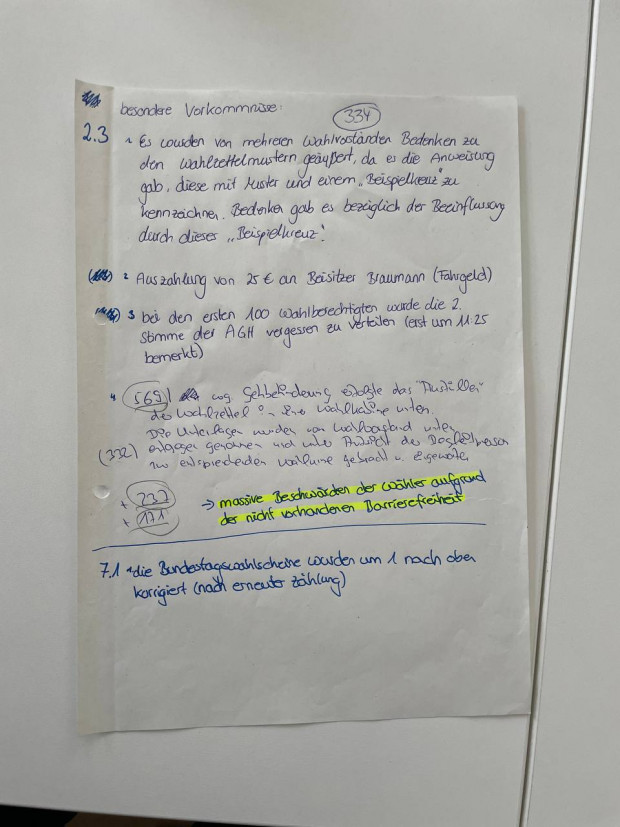 besondere Vorkommnisse:
334
2.3 1 Es wurden von mehreren Wahlvorständen Bedenken zu
den Wahlzettelmustern geäußert, da es die Anweisung
gab, diese mit Muster und einem „Beispielkreuz" zu
kennzeichnen. Bedenken gab es bezüglich der Beeinflussung
durch dieses „Beispielkreuz".
2 Auszahlung von 25 € an Beisitzer Braumann (Fahrgeld)
3 bei den ersten 100 Wahlberechtigten wurde die 2.
Stimme der AGH vergessen zu verteilen (erst um 11:25
bemerkt)
4 569 wg. Gehbehinderung erfolgte das "Ausfüllen"
der Wahlzettel in eine Wahlkabine unten.
Die Unterlagen wurden vom Wahlvorstand unten
(332) entgegen genommen und unter Aufsicht der
zur entsprechenden gebracht u. eigeworfen
+ 237 → massive Beschwerden der Wähler aufgrund
+ 171 der nicht vorhandenen Barrierefreiheit
7.1 die Bundestagswahlscheine wurden um 1 nach oben
korrigiert (nach erneuter Zählung)